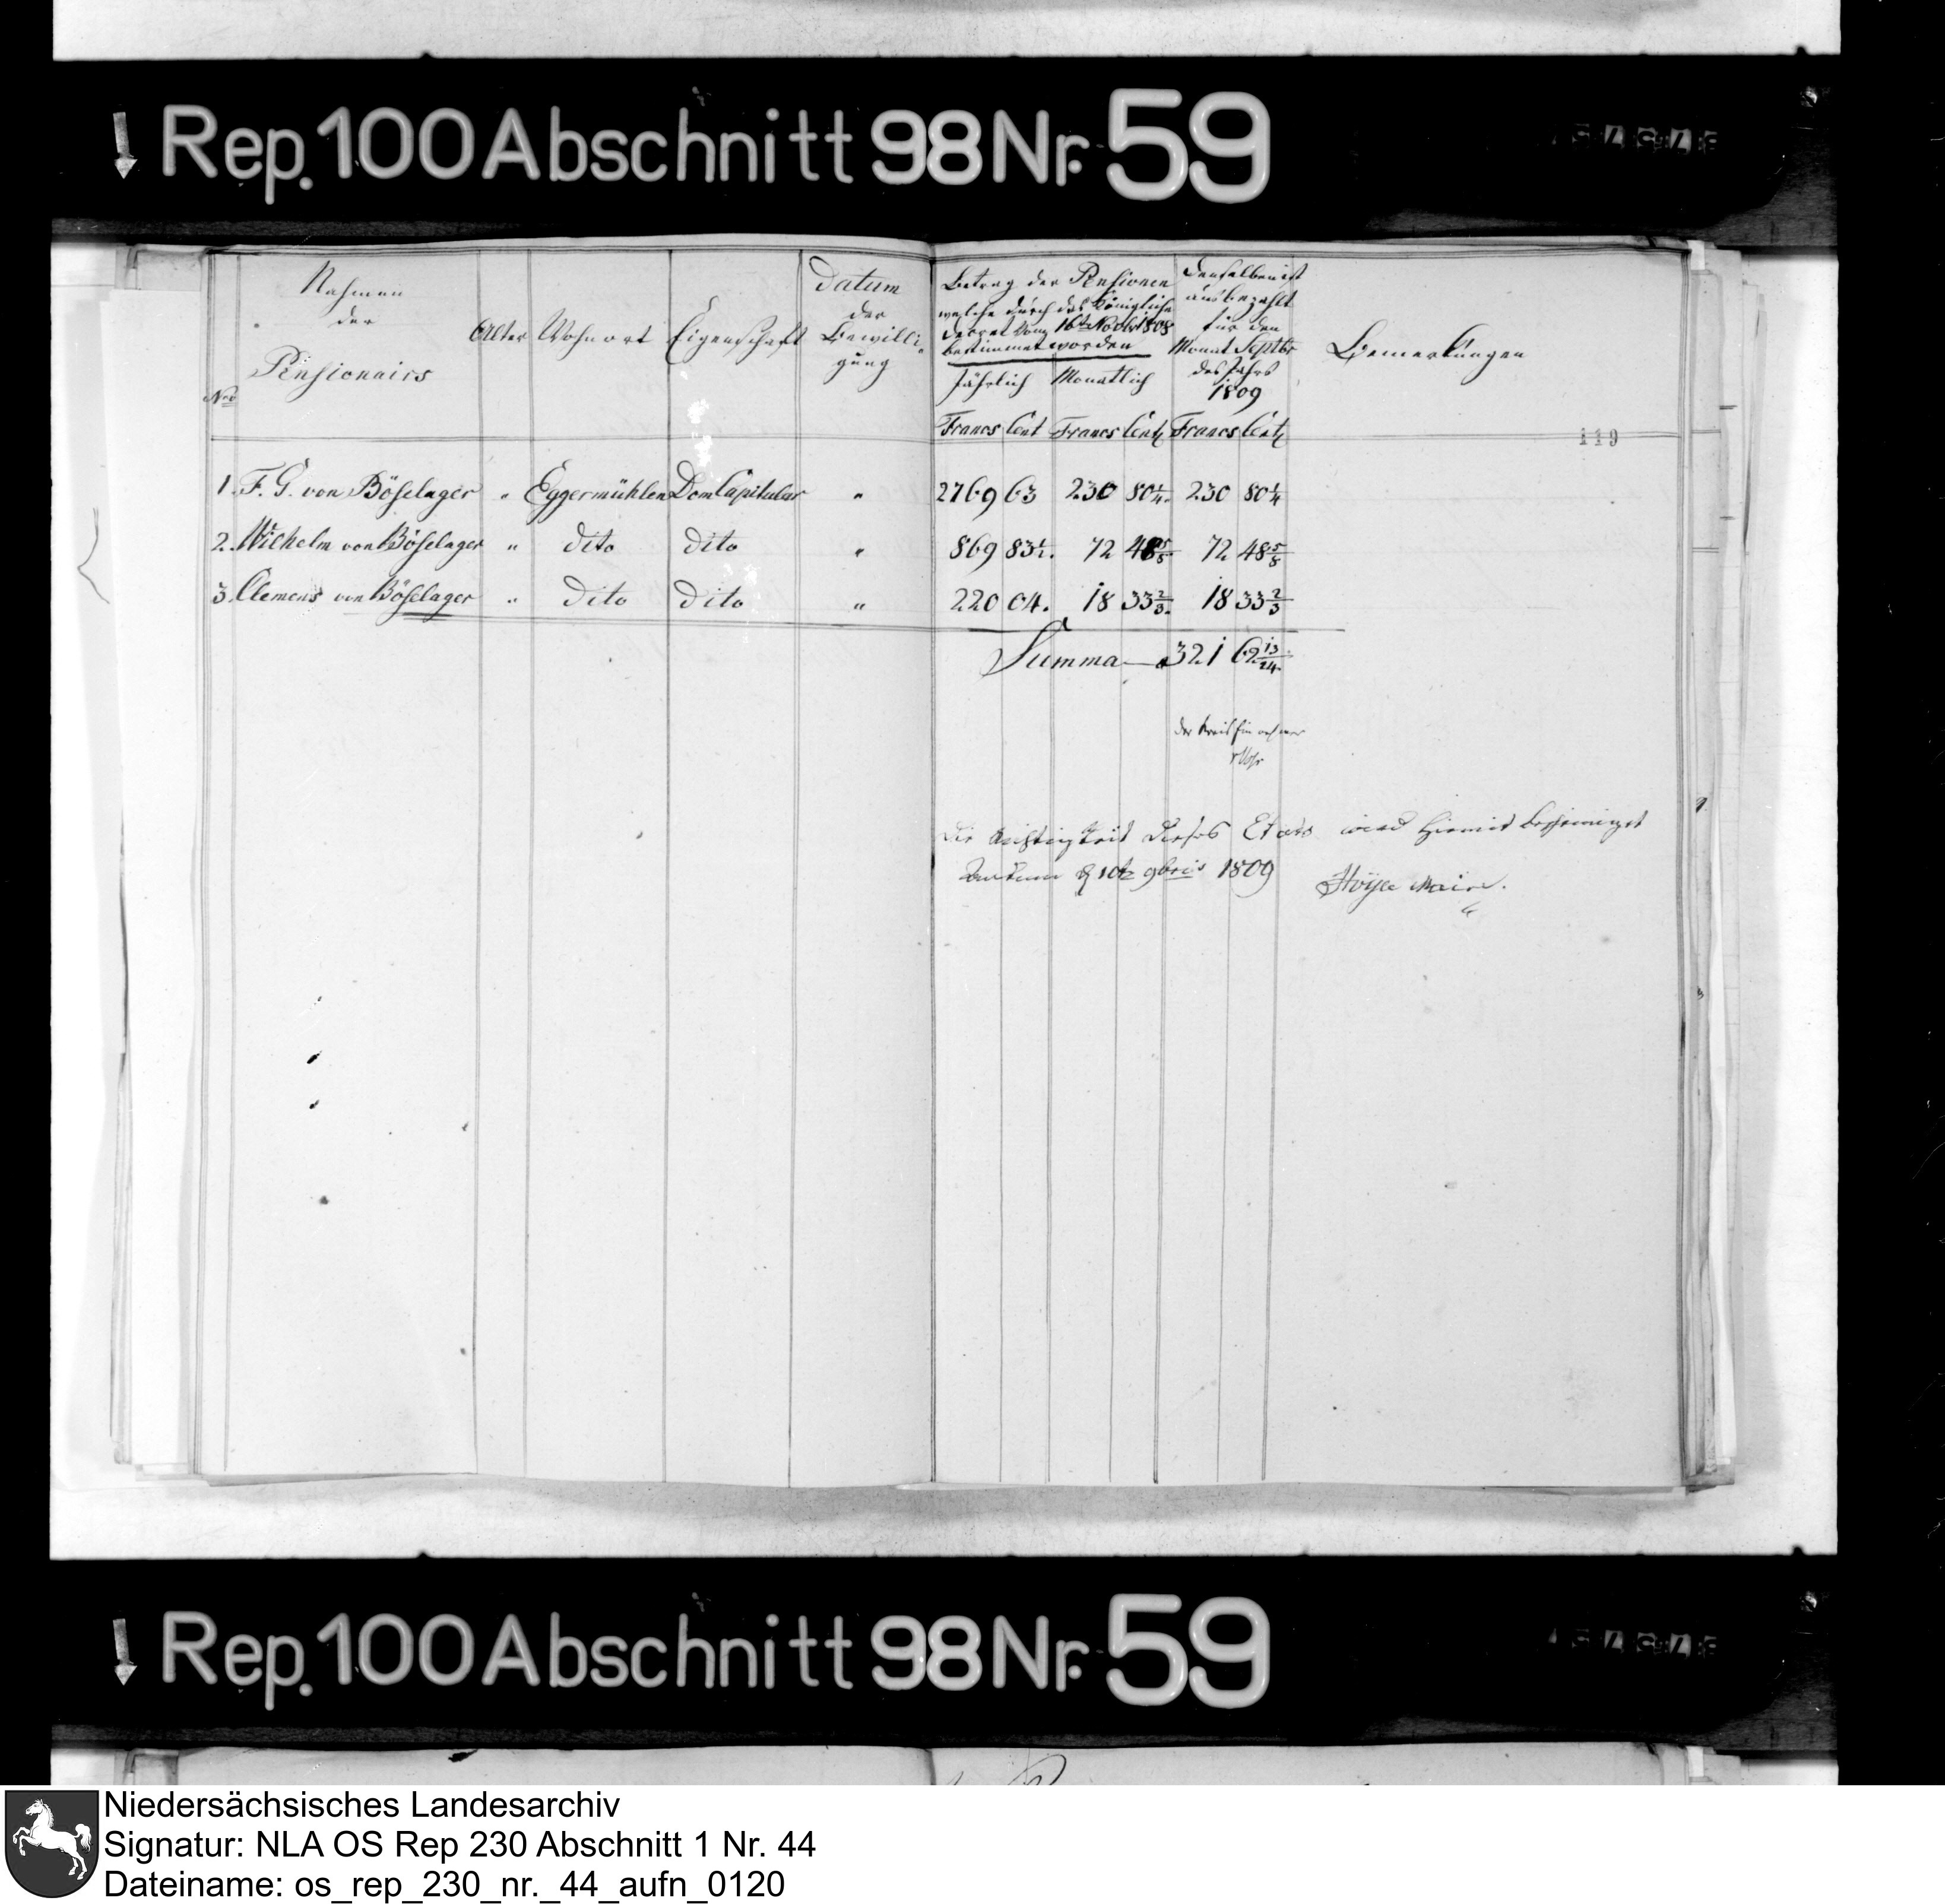 Rep. 100 Abschnitt 98 Nr. 59
119
Nro
Nahmen
der
Pensionairs
Alter
Wohnort
Eigenschaft
Datum
der
Bewilli-
gung
Betrag der Pensionen
welche durch das Königliche
Decret vom 16t Novbr 1808
bestimmet worden
Jährlich Monatlich
Denselben ist
ausbezahlt
für den
Monat Septbr
des Jahrs
1809
Bemerkungen
Francs Cent Francs Cent Francs Cent
1. F. G. von Böselager " Eggermühlen DomCapitular " 2769 63 230 80¼. 230 80¼
2. Wilhelm von Böselager " dito dito " 869 83½. 72 48⅝ 72 48⅝
3. Clemens von Böselager " dito dito " 220 04. 18 33⅔. 18 33⅔
Summa — 321 62 13/24.
der Kreiseinnehmer
Die Richtigkeit dieses Etats wird hiemit bescheiniget
10t 9bris 1809 Maire.
Rep. 100 Abschnitt 98 Nr. 59
Niedersächsisches Landesarchiv
Signatur: NLA OS Rep 230 Abschnitt 1 Nr. 44
Dateiname: os_rep_230_nr._44_aufn_0120